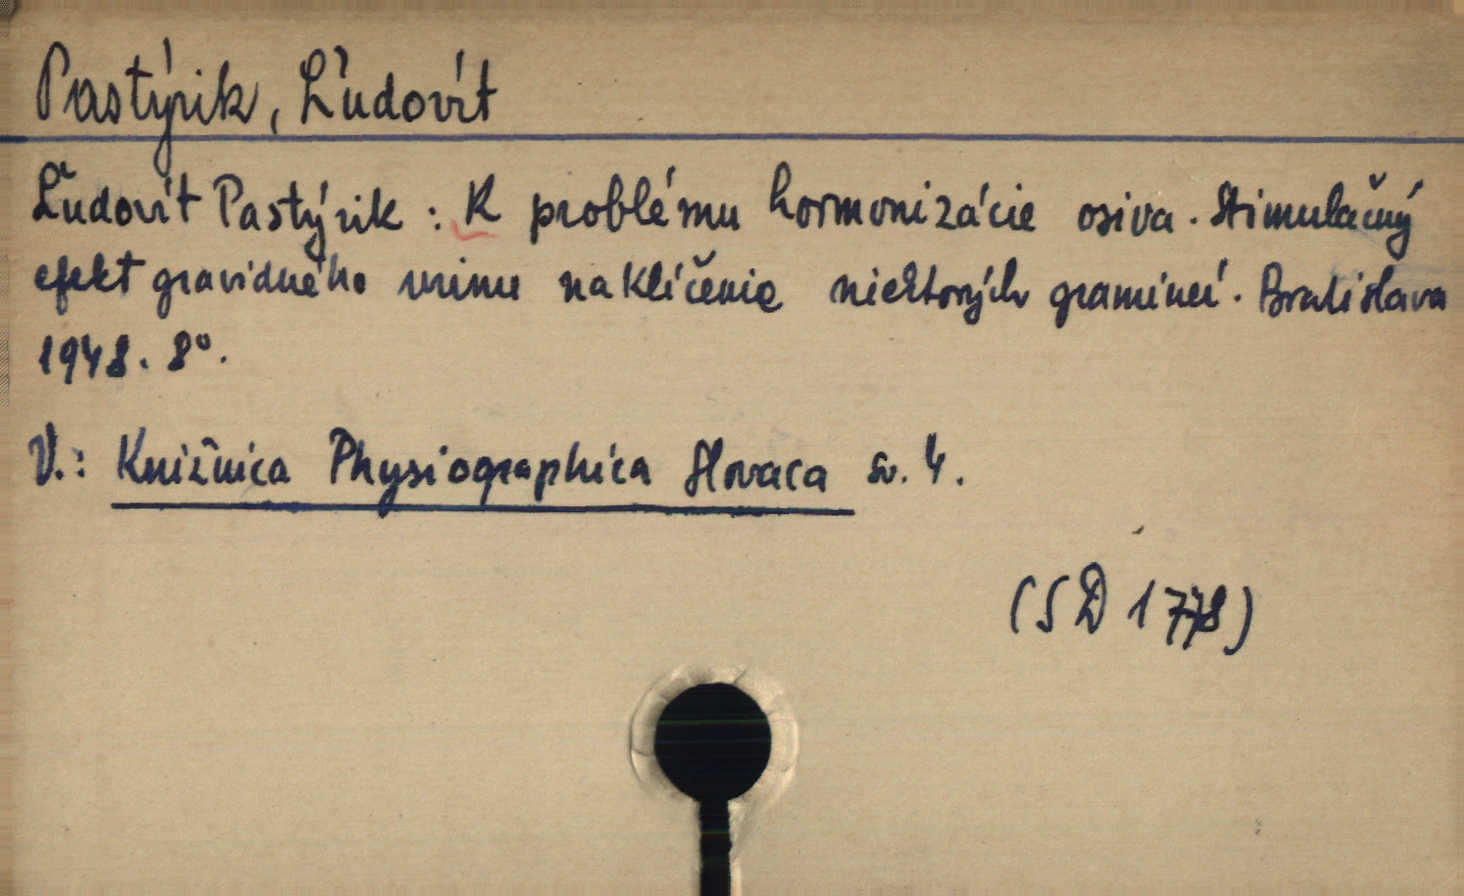 Pastýrik, Ľudovít
Ľudovít Pastýrik : K problému hormonizácie osiva. Stimulačný
efekt gravidného urinu na klíčenie niektorých gramineí. Bratislava
1948. 8°.
V.: Knižnica Physiographica Slovaca sv. 4.
(SD 1778)